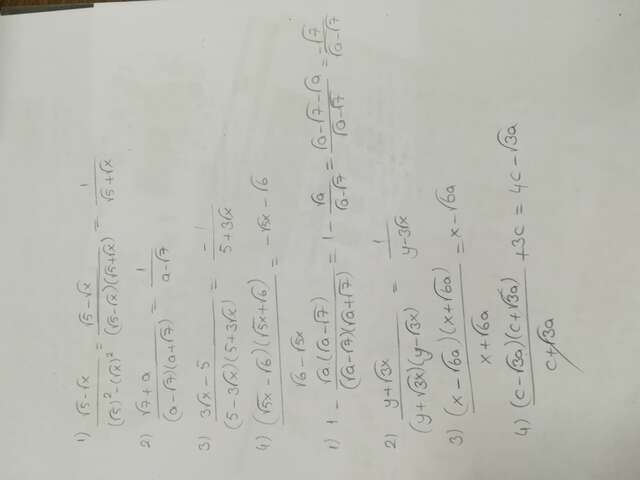 1) (√5-√x)/((√5)²-(√x)²) = (√5-√x)/((√5-√x)(√5+√x)) = 1/(√5+√x)
2) (√7+a)/((a-√7)(a+√7)) = 1/(a-√7)
3) (3√x-5)/((5-3√x)(5+3√x)) = -1/(5+3√x)
4) ((√5x-√6)(√5x+√6))/(√6-√5x) = -√5x-√6
1) 1-(√a(√a-√7))/((√a-√7)(√a+√7)) = 1-√a/(√a-√7) = (√a-√7-√a)/(√a-√7) = -√7/(√a-√7)
2) (y+√3x)/((y+√3x)(y-√3x)) = 1/(y-3√x)
3) ((x-√6a)(x+√6a))/(x+√6a) = x-√6a
4) ((c-√3a)(c+√3a))/(c+√3a) +3c = 4c-√3a